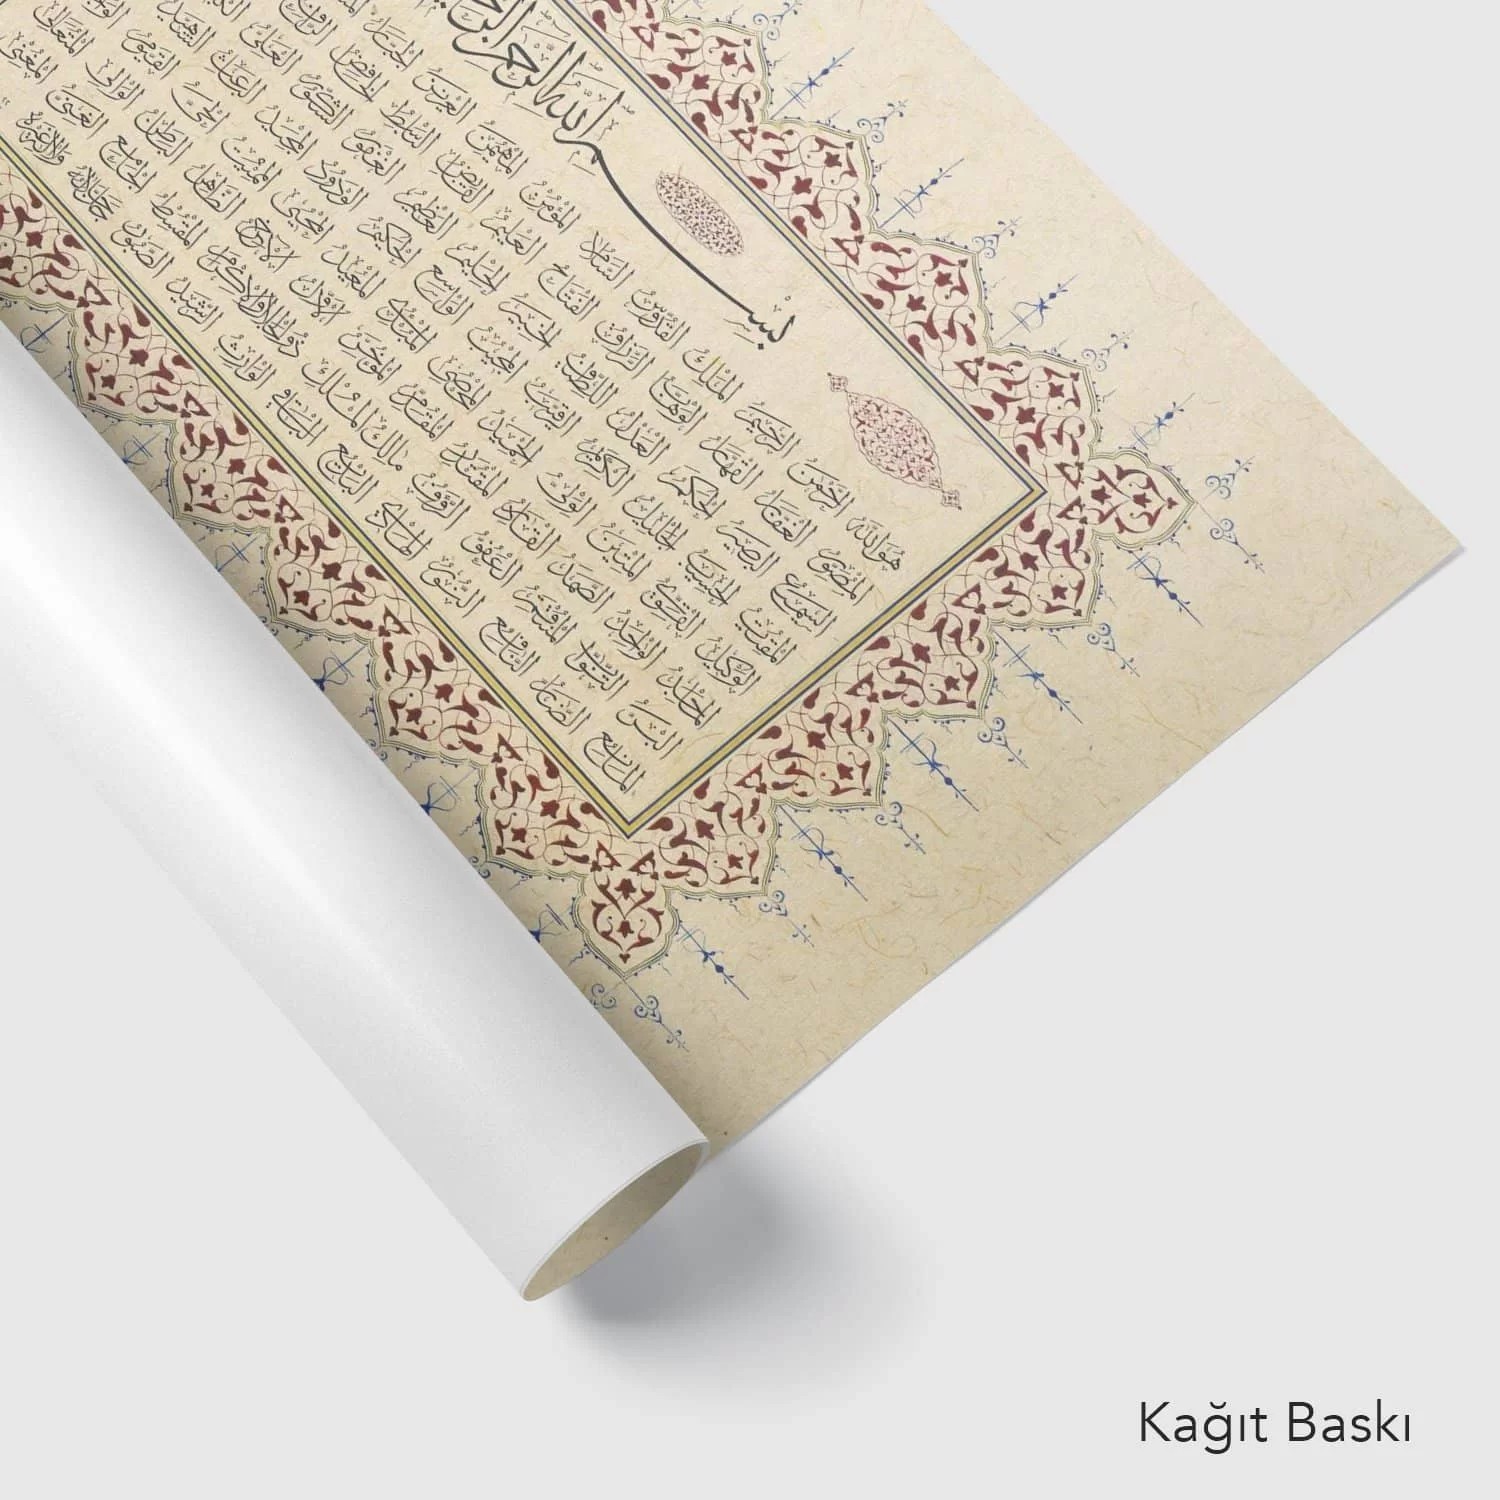 بسم الله الرحمن
هو الله الرحمن الرحيم الملك القدوس السلام المؤمن المهيمن العزيز الجبار
المصور الغفار القهار الوهاب الرزاق الفتاح العليم القابض الباسط الخافض الرافع
السميع البصير الحكم العدل اللطيف الخبير الحليم العظيم الغفور الشكور العلي
المقيت الحسيب الجليل الكريم الرقيب المجيب الواسع الحكيم الودود المجيد الباعث الشهيد
الوكيل القوي المتين الولي الحميد المحصي المبدئ المعيد المحيي المميت الحي القيوم
الماجد الواحد الصمد القادر المقتدر المقدم المؤخر الاول الاخر الظاهر الباطن الوالي المتعالي
البر التواب المنتقم العفو الرؤف مالك الملك ذو الجلال والاكرام المقسط الجامع الغني المغني
المانع الضار النافع النور الهادي البديع الباقي الوارث الرشيد الصبور جل جلاله
Kağıt Baskı